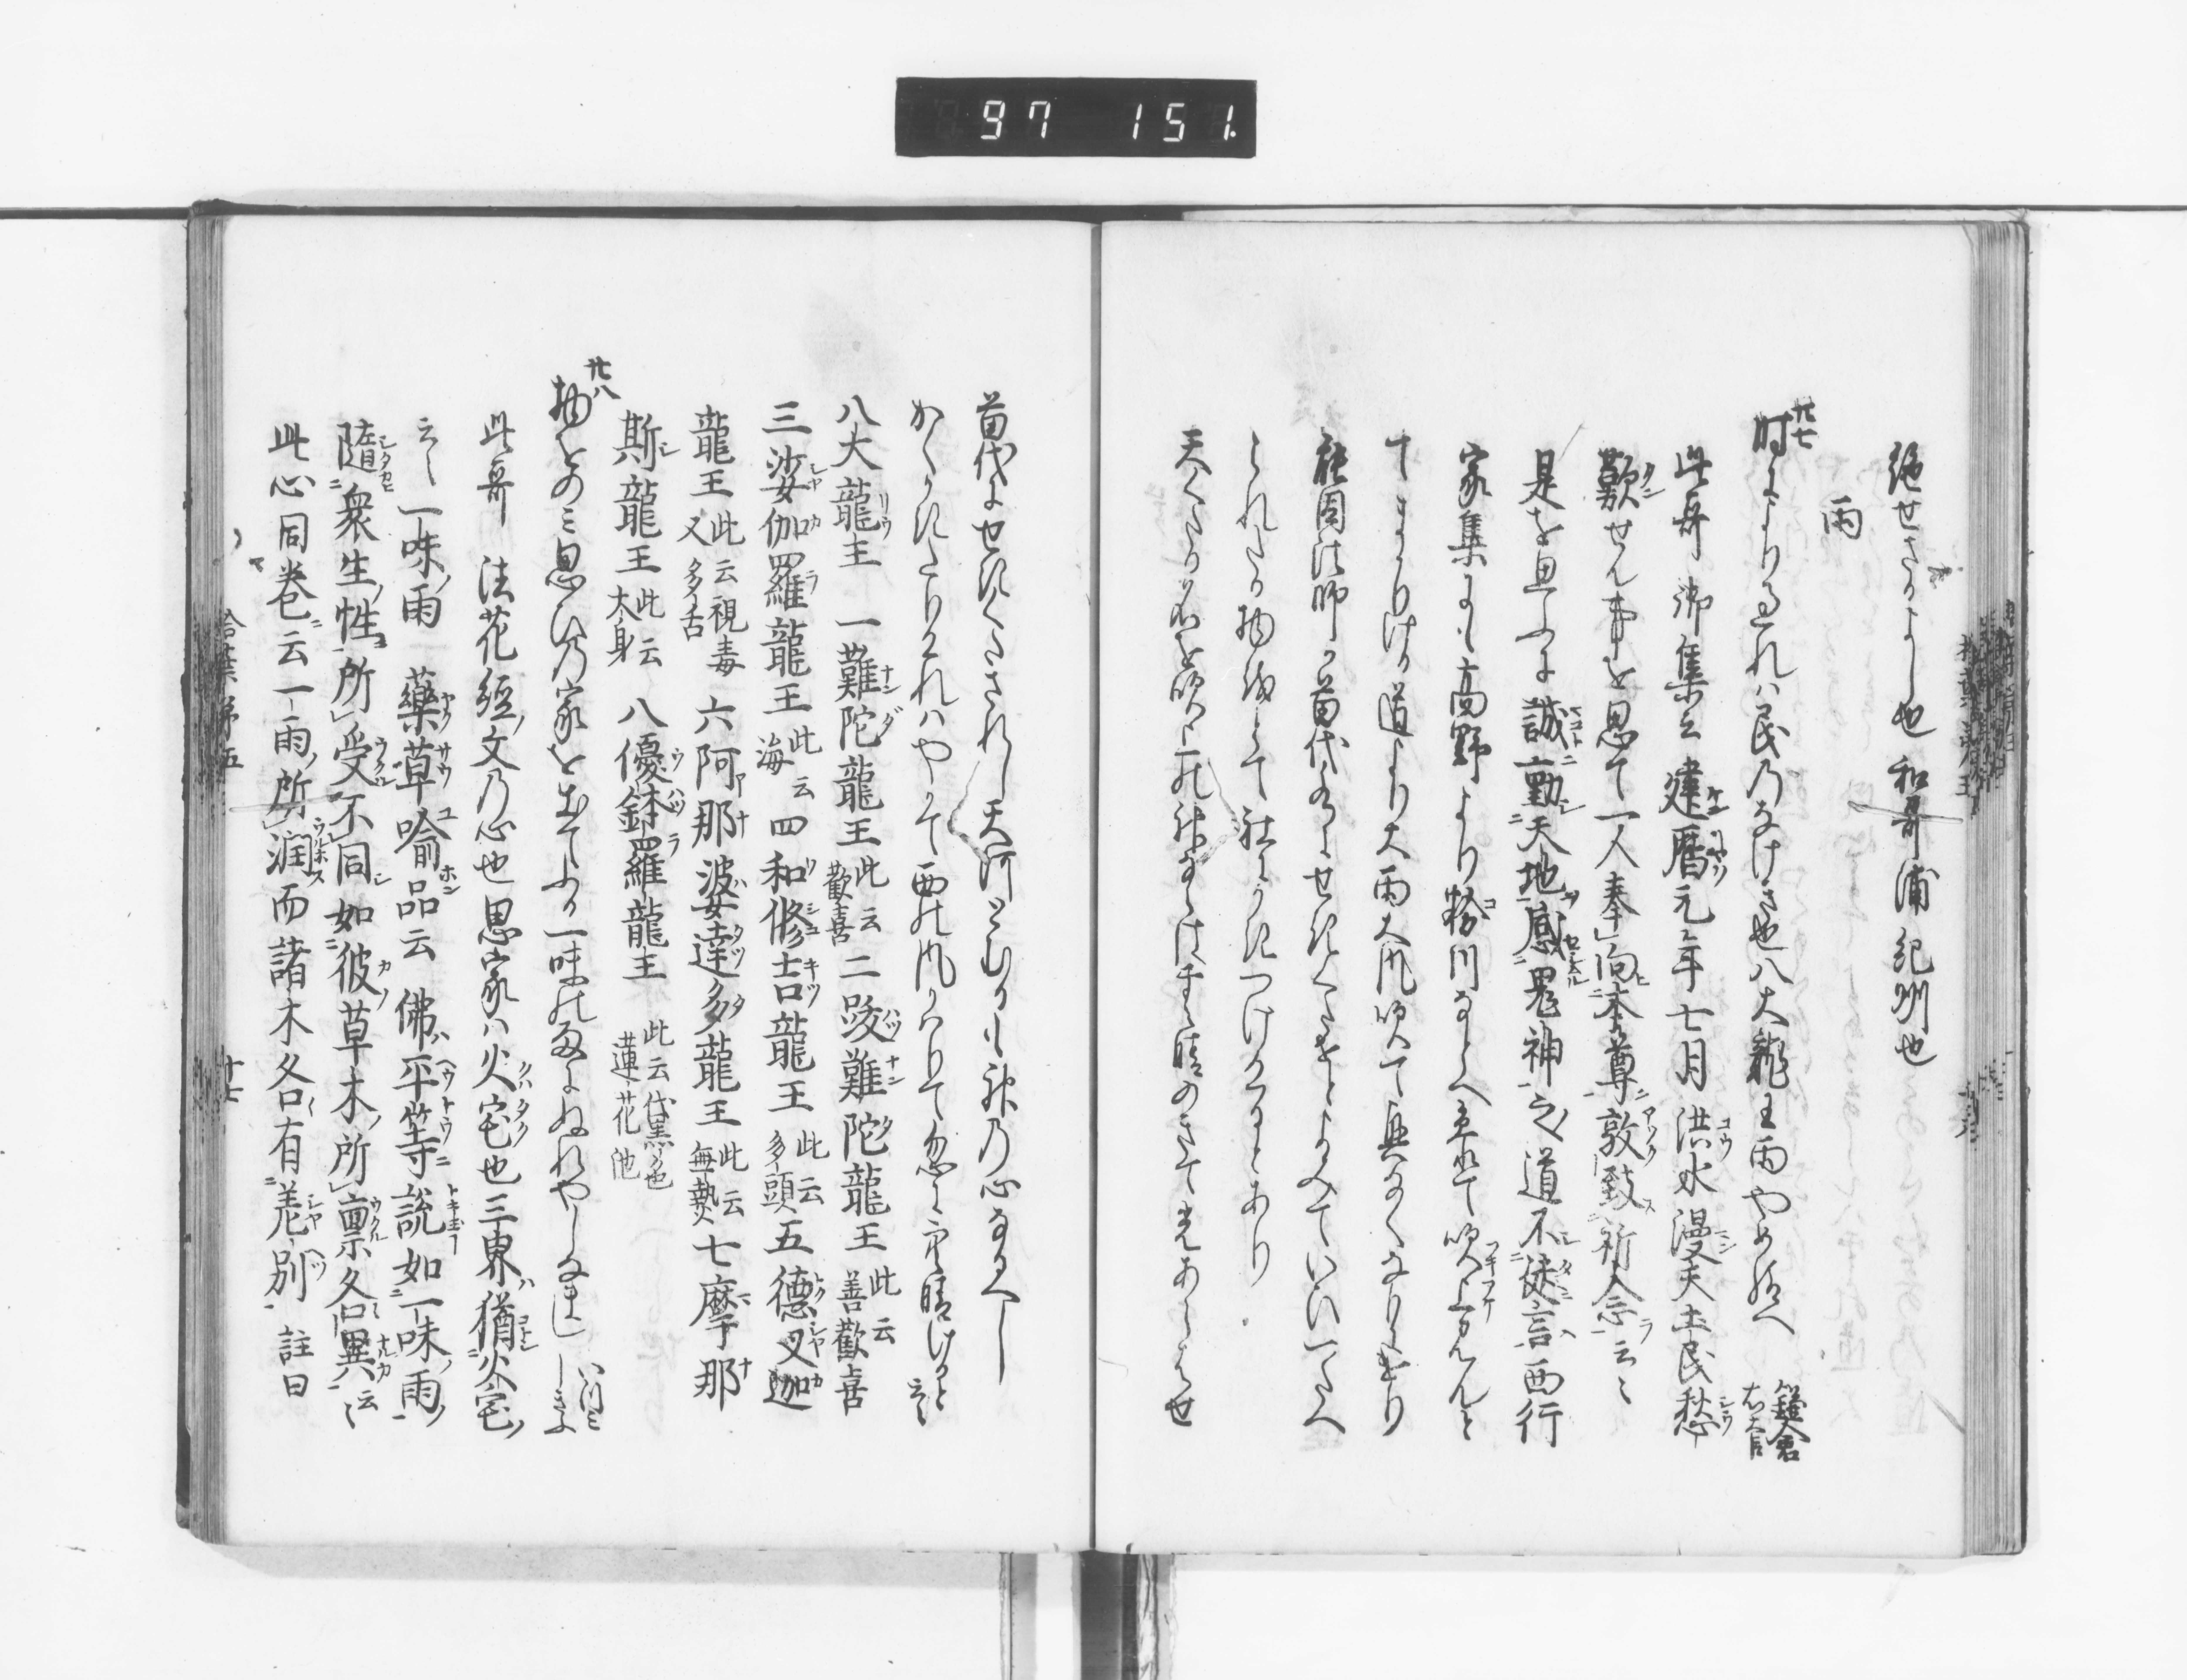 97 151.
絶せさるよし也 和哥浦 紀州也
雨
廿七
時によりすくれハ民のなけき也八大龍王雨やめ給へ 鎌倉右大臣
此哥 御集云 建暦元年七月洪水漫天土民愁
歎せん事を思て一人奉向本尊敦致祈念云々
是を思ふに誠動天地感鬼神之道不徒言西行
家集にも高野より粉川なとへ
てまかりける道より大雨大風吹て興なくなりにけり
能因法師か苗代水にせきくたせとよみていひつたへ
られたる物をとて社にかきつけゝるとあり
天くたる名を吹上の神ならは雲晴のきて光あらはせ
苗代にせきくたされし天河とむるも神の心なるへし
かくかきたりけれハやかて西の風かはりて忽に空晴けると云々
八大龍王 一難陀龍王此云歓喜 二跋難陀龍王此云善歓喜
三娑伽羅龍王此云海 四和修吉龍王此云多頭 五徳叉迦
龍王此云視毒又多舌 六阿那婆達多龍王此云無熱 七摩那
斯龍王此云太身 八優鉢羅龍王此云黛色蓮花池
廿八
物をのミ思ひの家を出てふる一味の雨にぬれやしなまし いつミしきふ
此哥 法花経ノ文乃心也思家ハ火宅也三界ハ猶火宅ノ
云々 一味ノ雨 薬草喩品云 佛平等説如一味ノ雨ノ
隨衆生ノ性所受不同如彼草木ノ所禀各異云々
此心同巻ニ云一雨ノ所潤而諸木各有差別 註曰
拾葉第五
十七